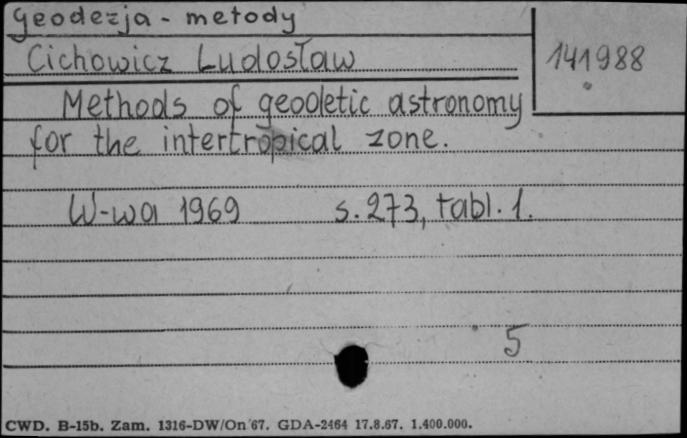 geodezja - metody
Cichowicz Ludosław
141988
Methods of geodetic astronomy
for the intertropical zone.
W-wa 1969 s. 273, tabl. 1.
5
CWD. B-15b. Zam. 1316-DW/On 67. GDA-2464 17.8.67. 1.400.000.